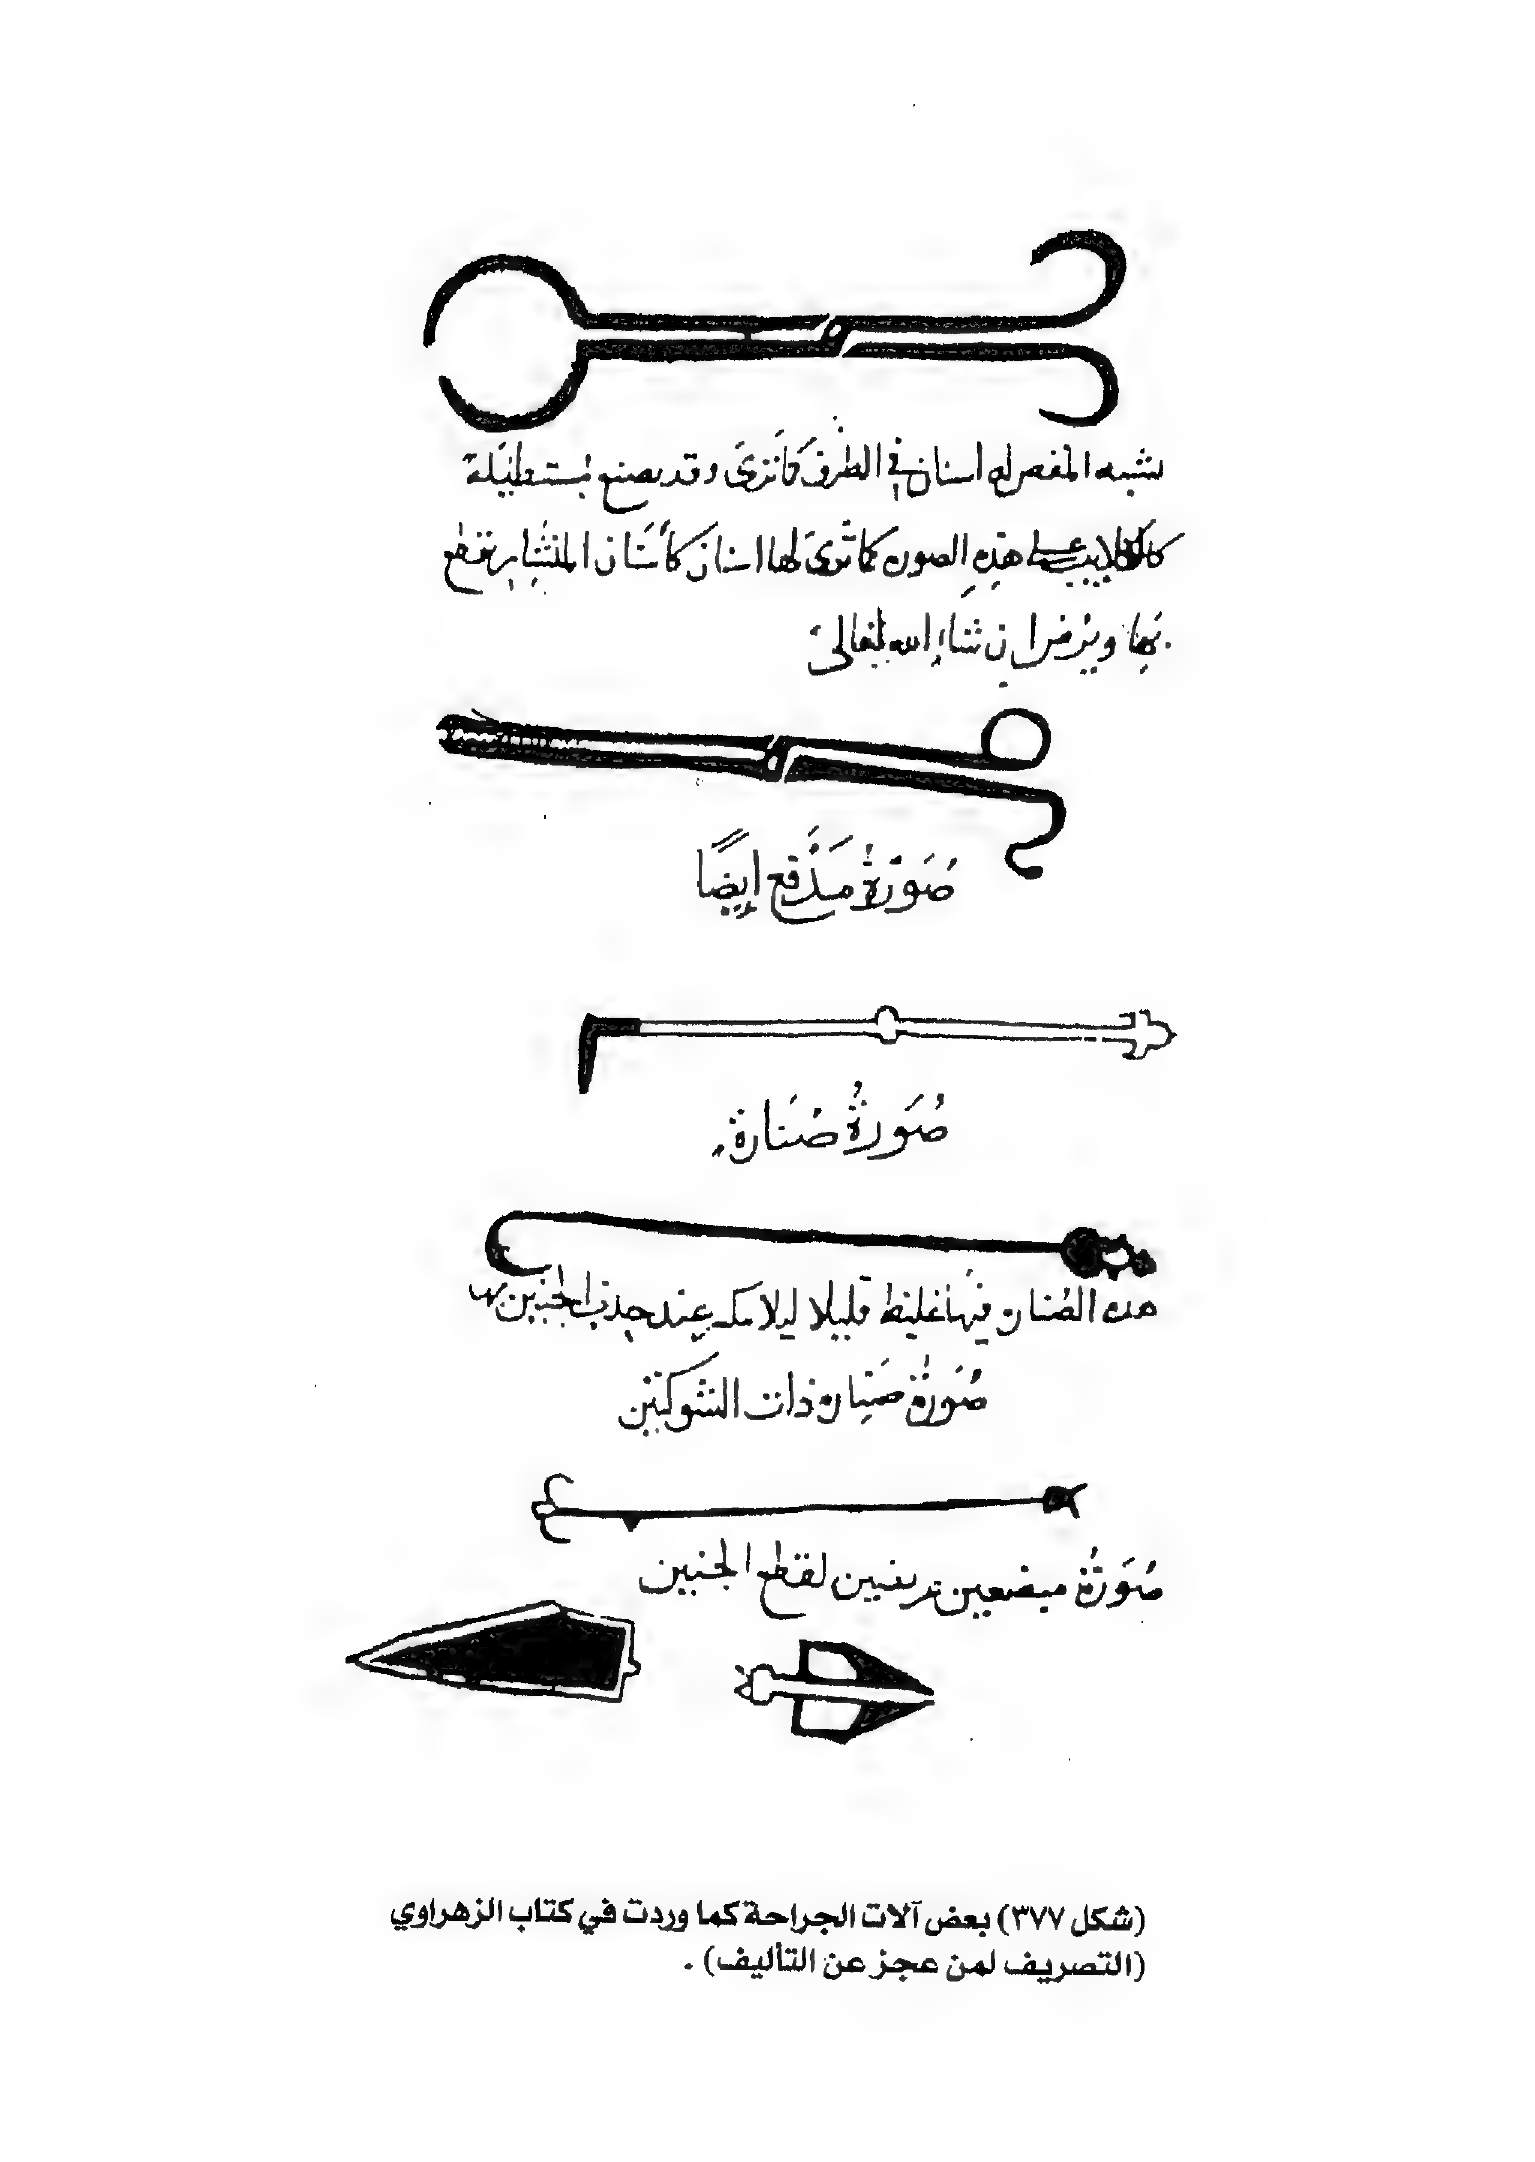 يشبه المقص له اسنان في الطرف كما ترى وقد يصنع مستطيلة
كالكلاليب على هذه الصوره كما ترى لها اسنان كأسنان المنشار يقطع
بها ويرض ان شاء الله تعالى
صُورَةُ مدفع ايضًا
صُورَةُ صنارة
هذه الصناره فيها غلظ قليلا ليلا عند جذب الجنين بها
صُورَةُ صناره ذات الشوكتين
صُورَةُ مبضعين لقطع الجنين
(شكل ٣٧٧) بعض آلات الجراحة كما وردت في كتاب الزهراوي
(التصريف لمن عجز عن التأليف) .